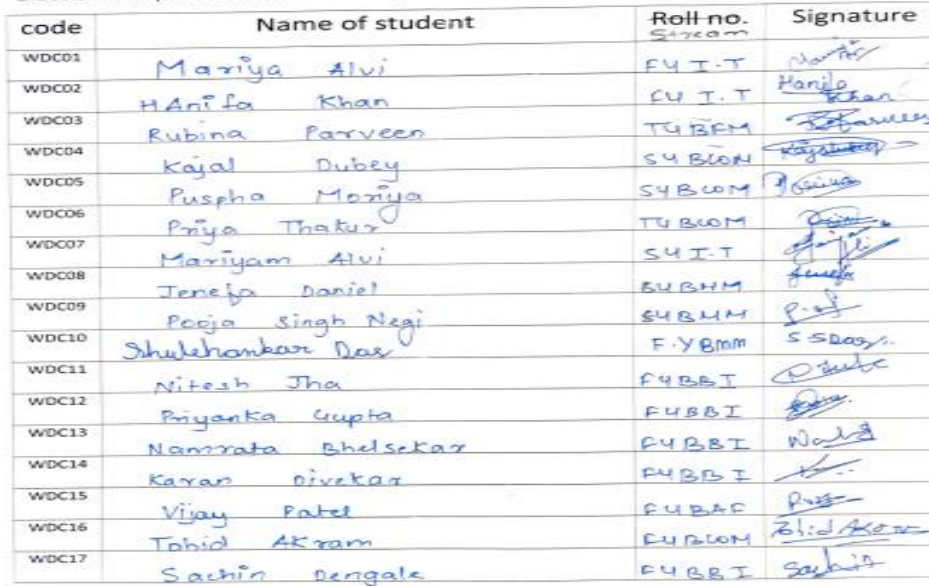 code Name of student Roll no. Signature
Stream
WDC01 Mariya Alvi FY I.T
WDC02 HAnifa Khan FY I.T Hanifa Khan
WDC03 Rubina Parveen TYBFM
WDC04 Kajal Dubey SYBCOM
WDC05 Puspha Moriya SYBCOM
WDC06 Priya Thakur TYBCOM
WDC07 Mariyam Alvi SY I.T
WDC08 Jenefa Daniel SYBMM
WDC09 Pooja Singh Negi SYBMM
WDC10 Das F.YBmm S S Das
WDC11 Nitesh Jha FYBBI
WDC12 Priyanka Gupta FYBBI
WDC13 Namrata Bhelsekar FYBBI
WDC14 Karan Divekar FYBBI
WDC15 Vijay Patel FYBAF
WDC16 Tohid Akram FYBCOM
WDC17 Sachin Dengale FYBBI